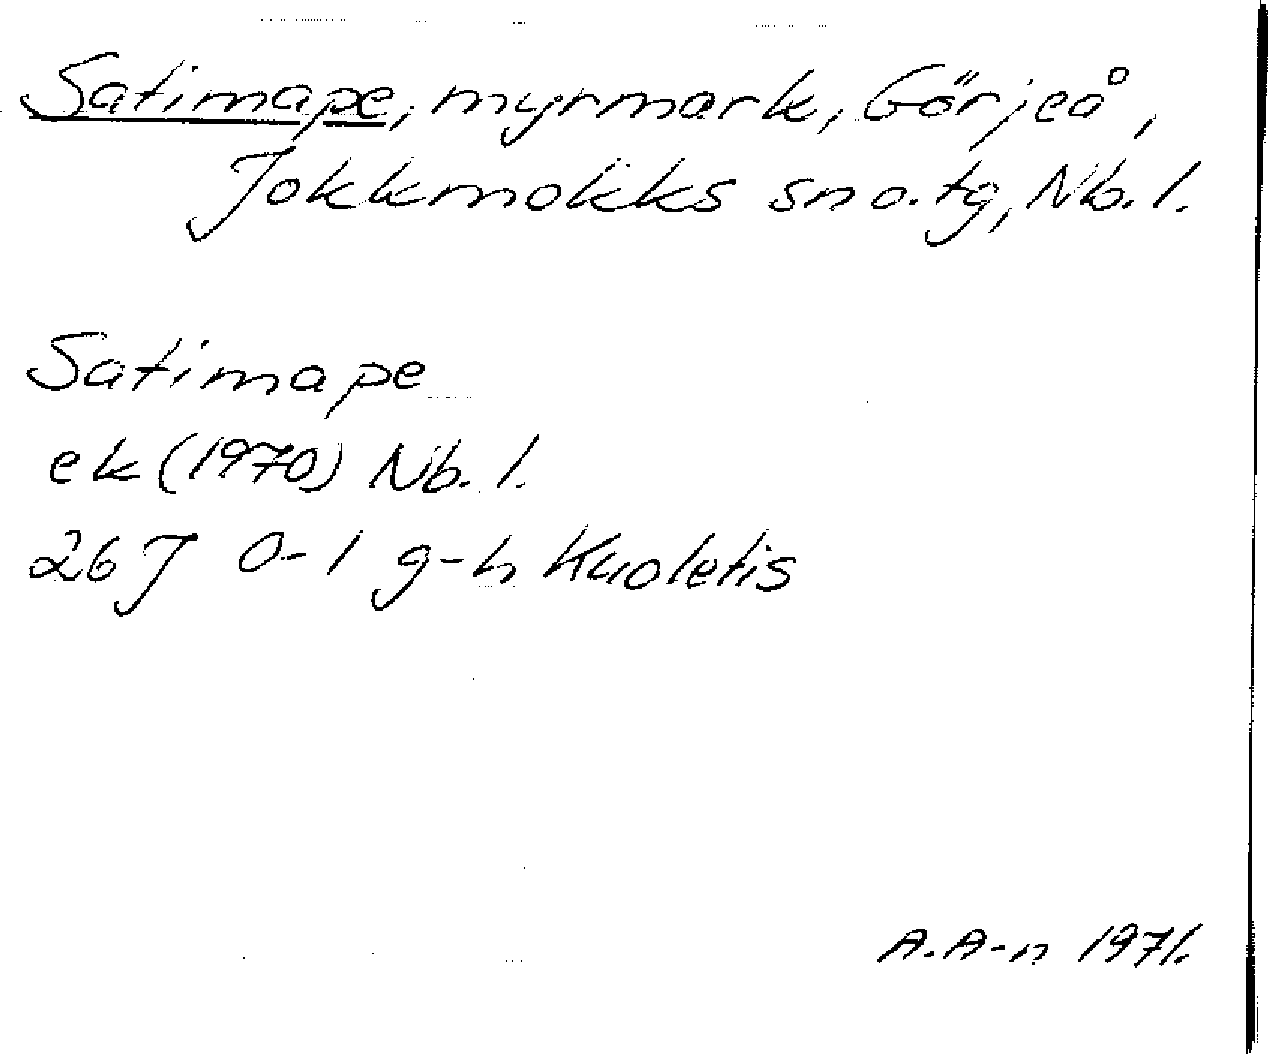 Satimape, myrmark, Görjeå,
Jokkmokks sn o. tg, Nb. l.
Satimape
ek (1970) Nb. l.
26 J 0-1 g-h Kuoletis
A. A-n 1971.